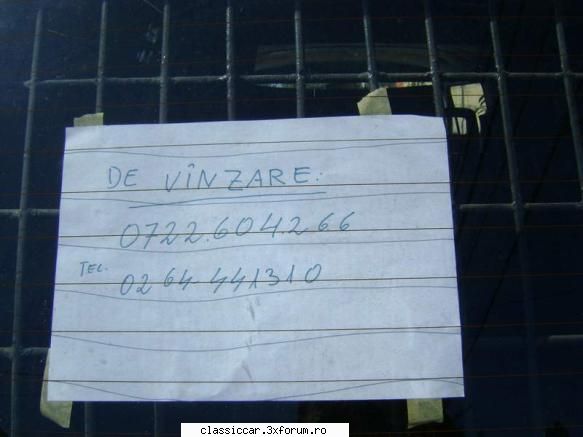 DE VÎNZARE:
0722.604.266
TEL.
0264-441310
classiccar.3xforum.ro